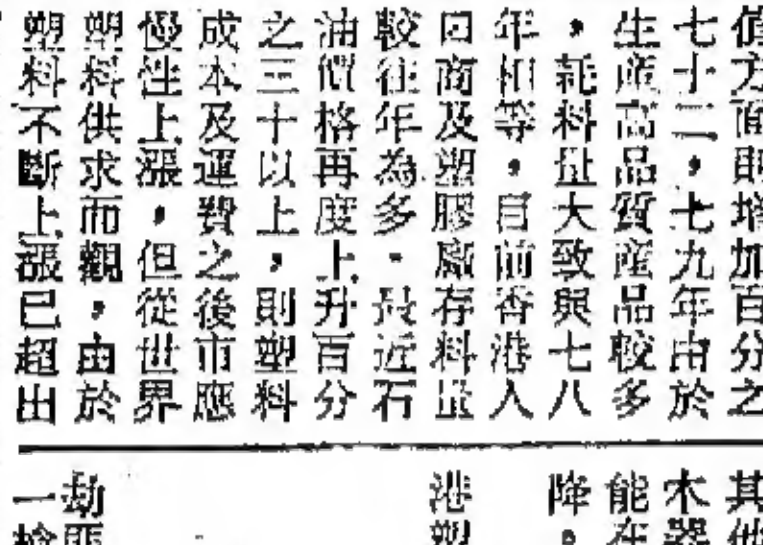 值方面則增加百分之
七十二,七九年由於
生産高品質産品較多
,耗料量大致與七八
年相等,目前香港入
口商及塑膠廠存料量
較往年為多。最近石
油價格再度上升百分
之三十以上,則塑料
成本及運費之後市應
慢性上漲,但從世界
塑料供求而觀,由於
塑料不斷上漲已超出
其他
木器
能在
降。
港塑
劫匪
一槍